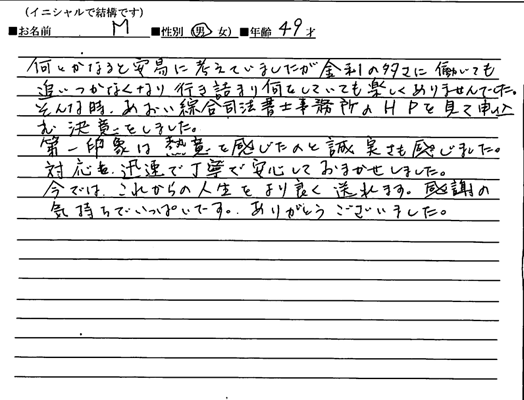 (イニシャルで結構です)
■お名前 M ■性別 (男) 女) ■年齢 49才
何とかなると安易に考えていましたが金利の多さに働いても
追いつかなくなり行き詰まり何をしていても楽しくありませんでした。
そんな時、あおい綜合司法書士事務所のHPを見て申込
む決意をしました。
第一印象は熱意を感じたのと誠実さも感じました。
対応も迅速で丁寧で安心しておまかせしました。
今では、これからの人生をより良く送れます。感謝の
気持ちでいっぱいです。ありがとうございました。